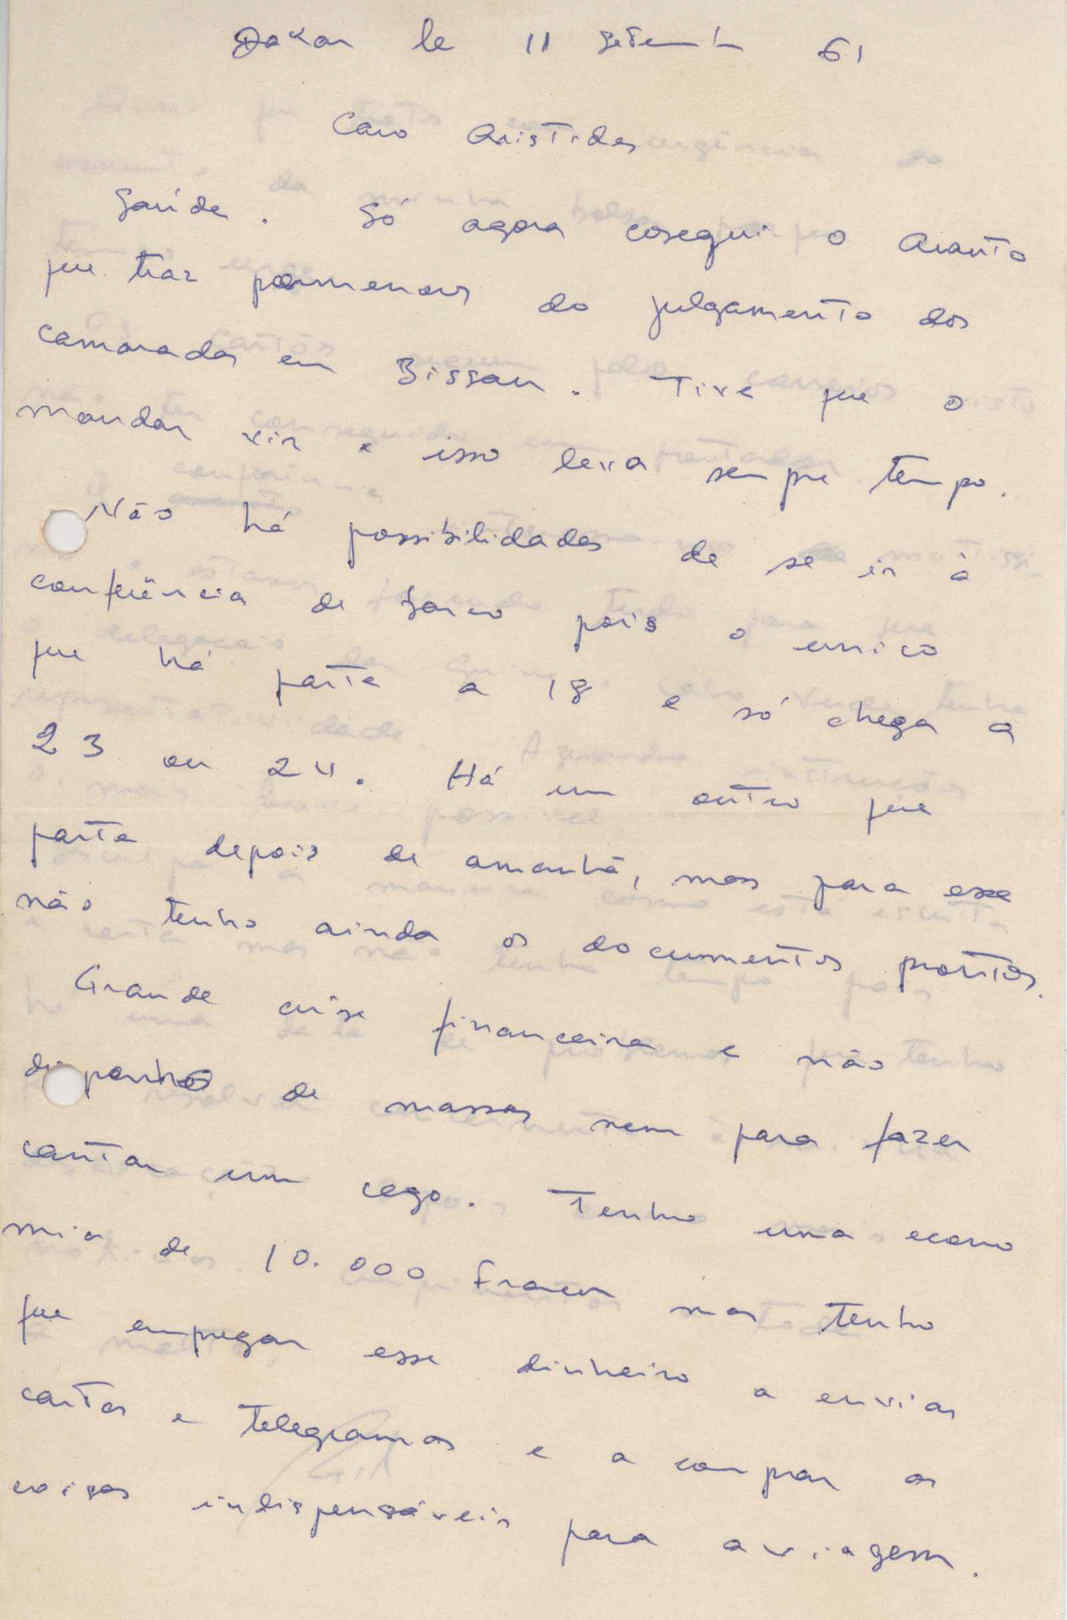 Dakar le 11 Setembr 61
Caro Aristides
Saúde. Só agora cosegui o Arauto
que traz pormenores do julgamento dos
camaradas em Bissau. Tive que o
mandar vir e isso leva sempre tempo.
Não há possibilidades de se ir à
conferência de barco pois o unico
que há parte a 18 e só chega a
23 ou 24. Há um outro que
parte depois de amanhã, mas para esse
não tenho ainda os documentos prontos.
Grande crise financeira e não
disponho de massas nem para fazer
cantar um cego. Tenho uma econo
mia de 10.000 francos mas tenho
que empregar esse dinheiro a enviar
cartas e telegramas e a comprar as
coisas indispensáveis para a viagem.